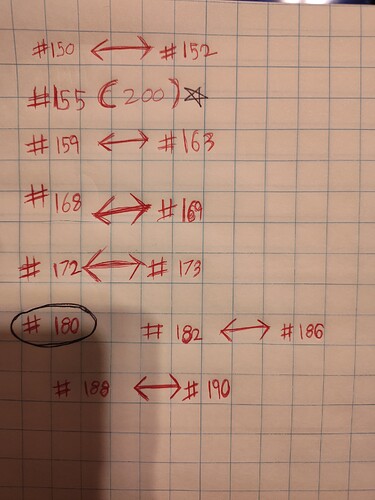 #150 ↔ #152
#155 (200) ☆
#159 ↔ #163
#168 ↔ #169
#172 ↔ #173
#180 #182 ↔ #186
#188 ↔ #190